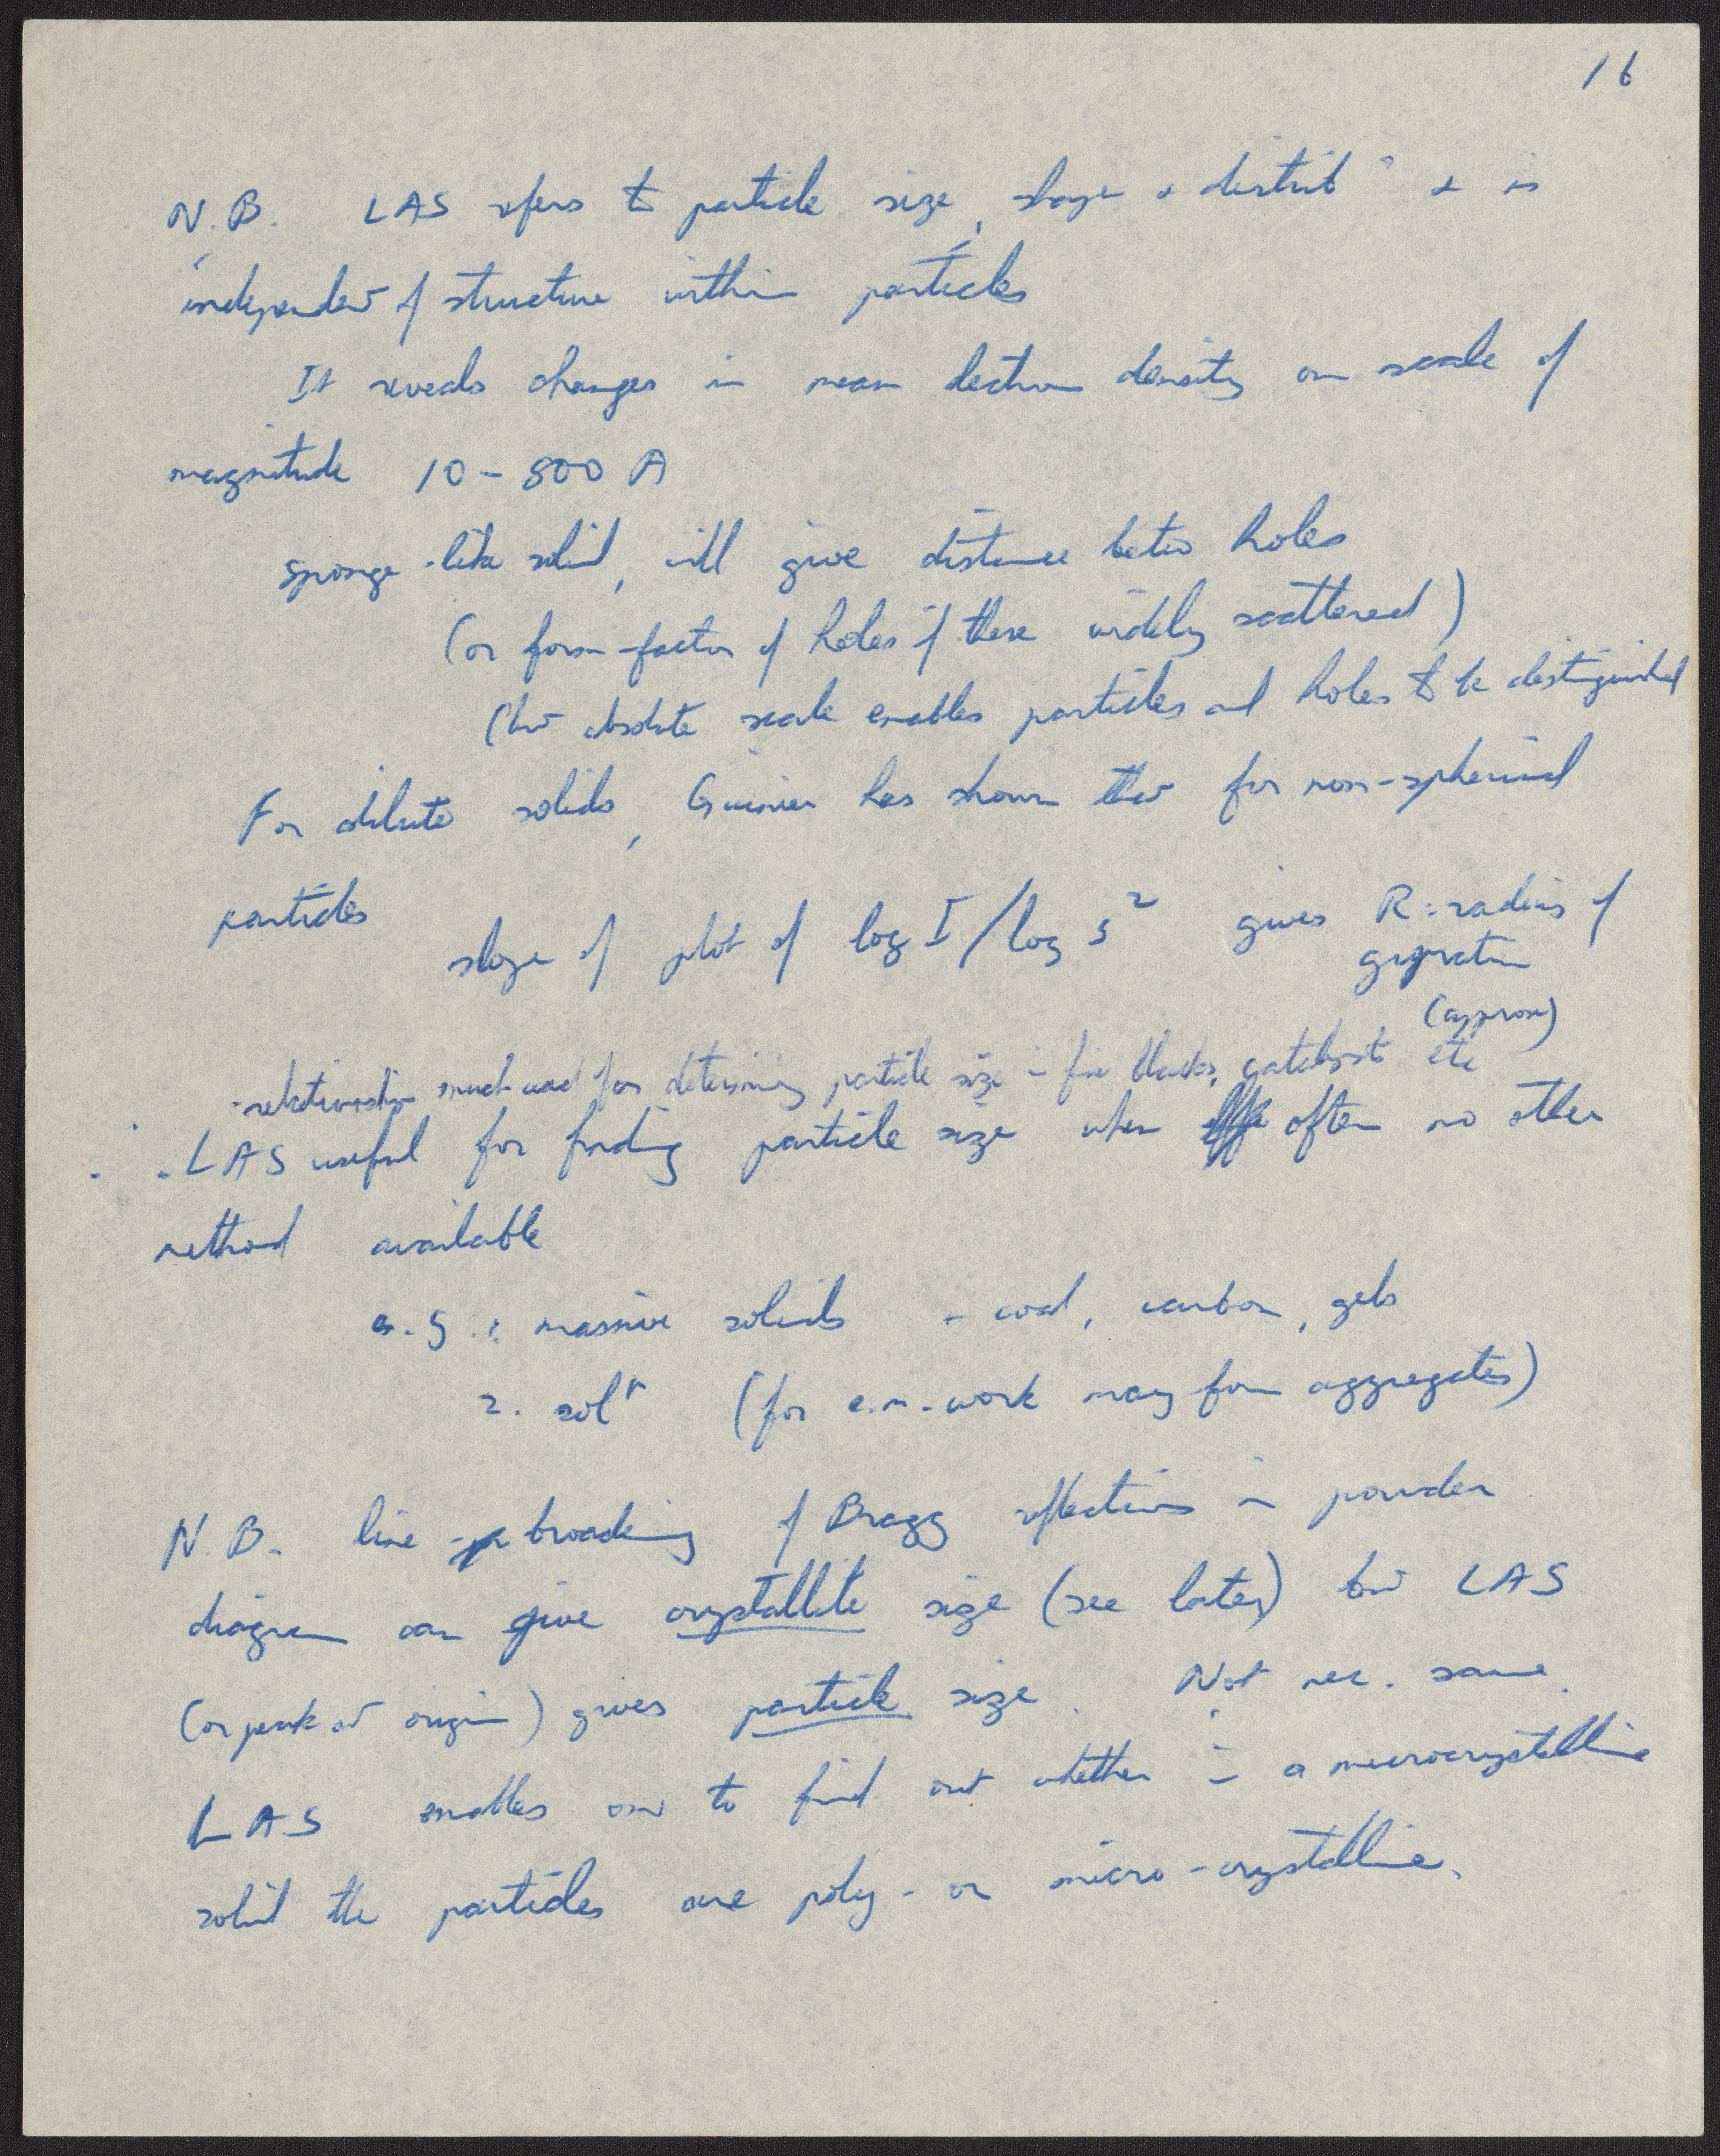 16
N.B. LAS refers to particle size, shape & distribn & is
independent of structure within particles
It reveals changes in mean electron density on scale of
magnitude 10 - 800 A
sponge-like solid, will give distance betw holes
(or form-factor of holes if these widely scattered)
(but absolute scale enables particles and holes to be distinguished
For dilute solids, Guinier has shown that for non-spherical
particles
slope of plot of log I / log s² gives R = radius of
gyration
(approx)
- relationship much used for determining particle size in fine blacks, catalysts etc
. . . LAS useful for finding particle size when often no other
method available
e.g. 1. massive solids - coal, carbon, gels
2. soln (for e.m. work may form aggregates)
N.B. line broadening of Bragg reflections in powder
diagram can give crystallite size (see later) but LAS
(or peak at origin) gives particle size. Not nec. same.
LAS enables one to find out whether in a microcrystalline
solid the particles are poly- or micro-crystalline.